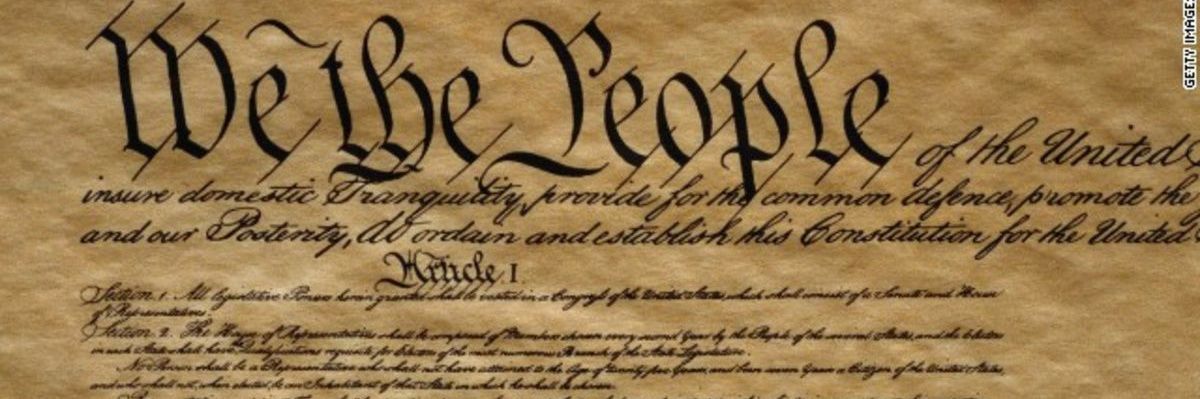 We the People of the United
insure domestic Tranquility, provide for the common defence, promote the
and our Posterity, do ordain and establish this Constitution for the United
Article I
Section. 1. All legislative Powers herein granted shall be vested in a Congress of the United States, which shall consist of a Senate and House
of Representatives.
Section 2. The House of Representatives shall be composed of Members chosen every second Year by the People of the several States, and the Electors
in each State shall have the Qualifications requisite for Electors of the most numerous Branch of the State Legislature.
No Person shall be a Representative who shall not have attained to the Age of twenty five Years, and been seven Years a Citizen of the United States,
and who shall not, when elected, be an Inhabitant of that State in which he shall be chosen.
GETTY IMAGES